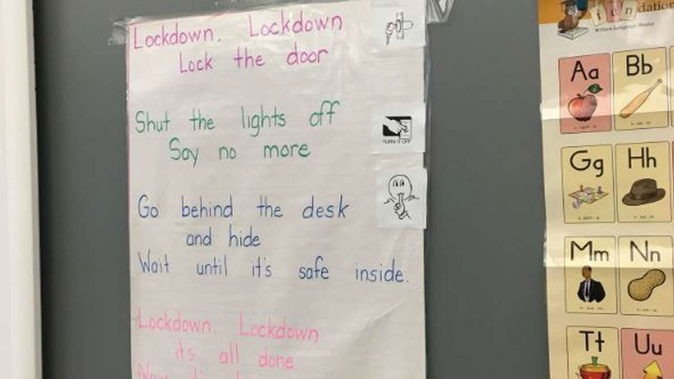 Lockdown, Lockdown
Lock the door
Shut the lights off
Say no more
TURN OFF
Go behind the desk
and hide
Wait until it's safe inside.
Lockdown, Lockdown
it's all done
Aa
Bb
Gg
Hh
Mm
Nn
Tt
Uu